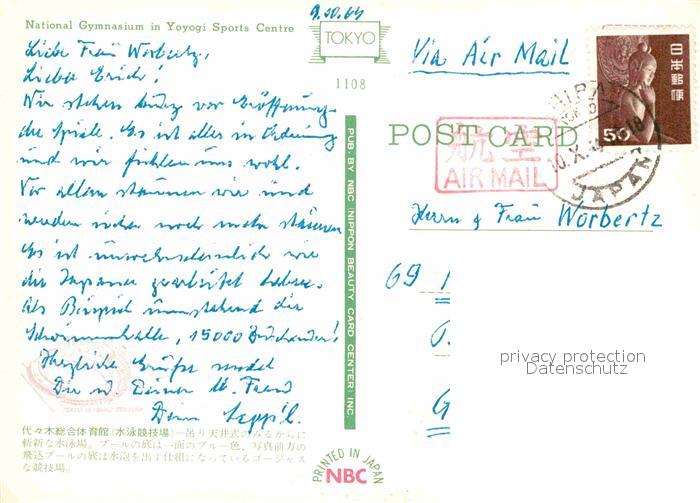 National Gymnasium in Yoyogi Sports Centre
TOKYO
1108
Liebe Frau Worbertz,
Lieber Erich!
Wir stehen kurz vor Eröffnung
der Spiele. Es ist alles in Ordnung
und wir fühlen uns wohl.
Vor allem staunen wir und
werden noch mehr staunen
Es ist unwahrscheinlich wie
die Japaner gearbeitet haben.
Als Beispiel umstehend die
Schwimmhalle, 15000 Zuschauer!
Herzliche Grüße sendet
Dir u. Deiner lb. Frau
Dein Seppl.
代々木総合体育館(水泳競技場)—吊り天井式のみるからに
斬新な水泳場。プールの底は一面のブルー色、写真前方の
飛込プールの底は水泡を出す仕組になっているゴージャス
な競技場。
PUB. BY NBC (NIPPON BEAUTY CARD CENTER) INC.
PRINTED IN JAPAN
NBC
Via Air Mail
POST CARD
航空
AIR MAIL
日本郵便
50
JAPAN
Herrn & Frau Worbertz
69
privacy protection
Datenschutz